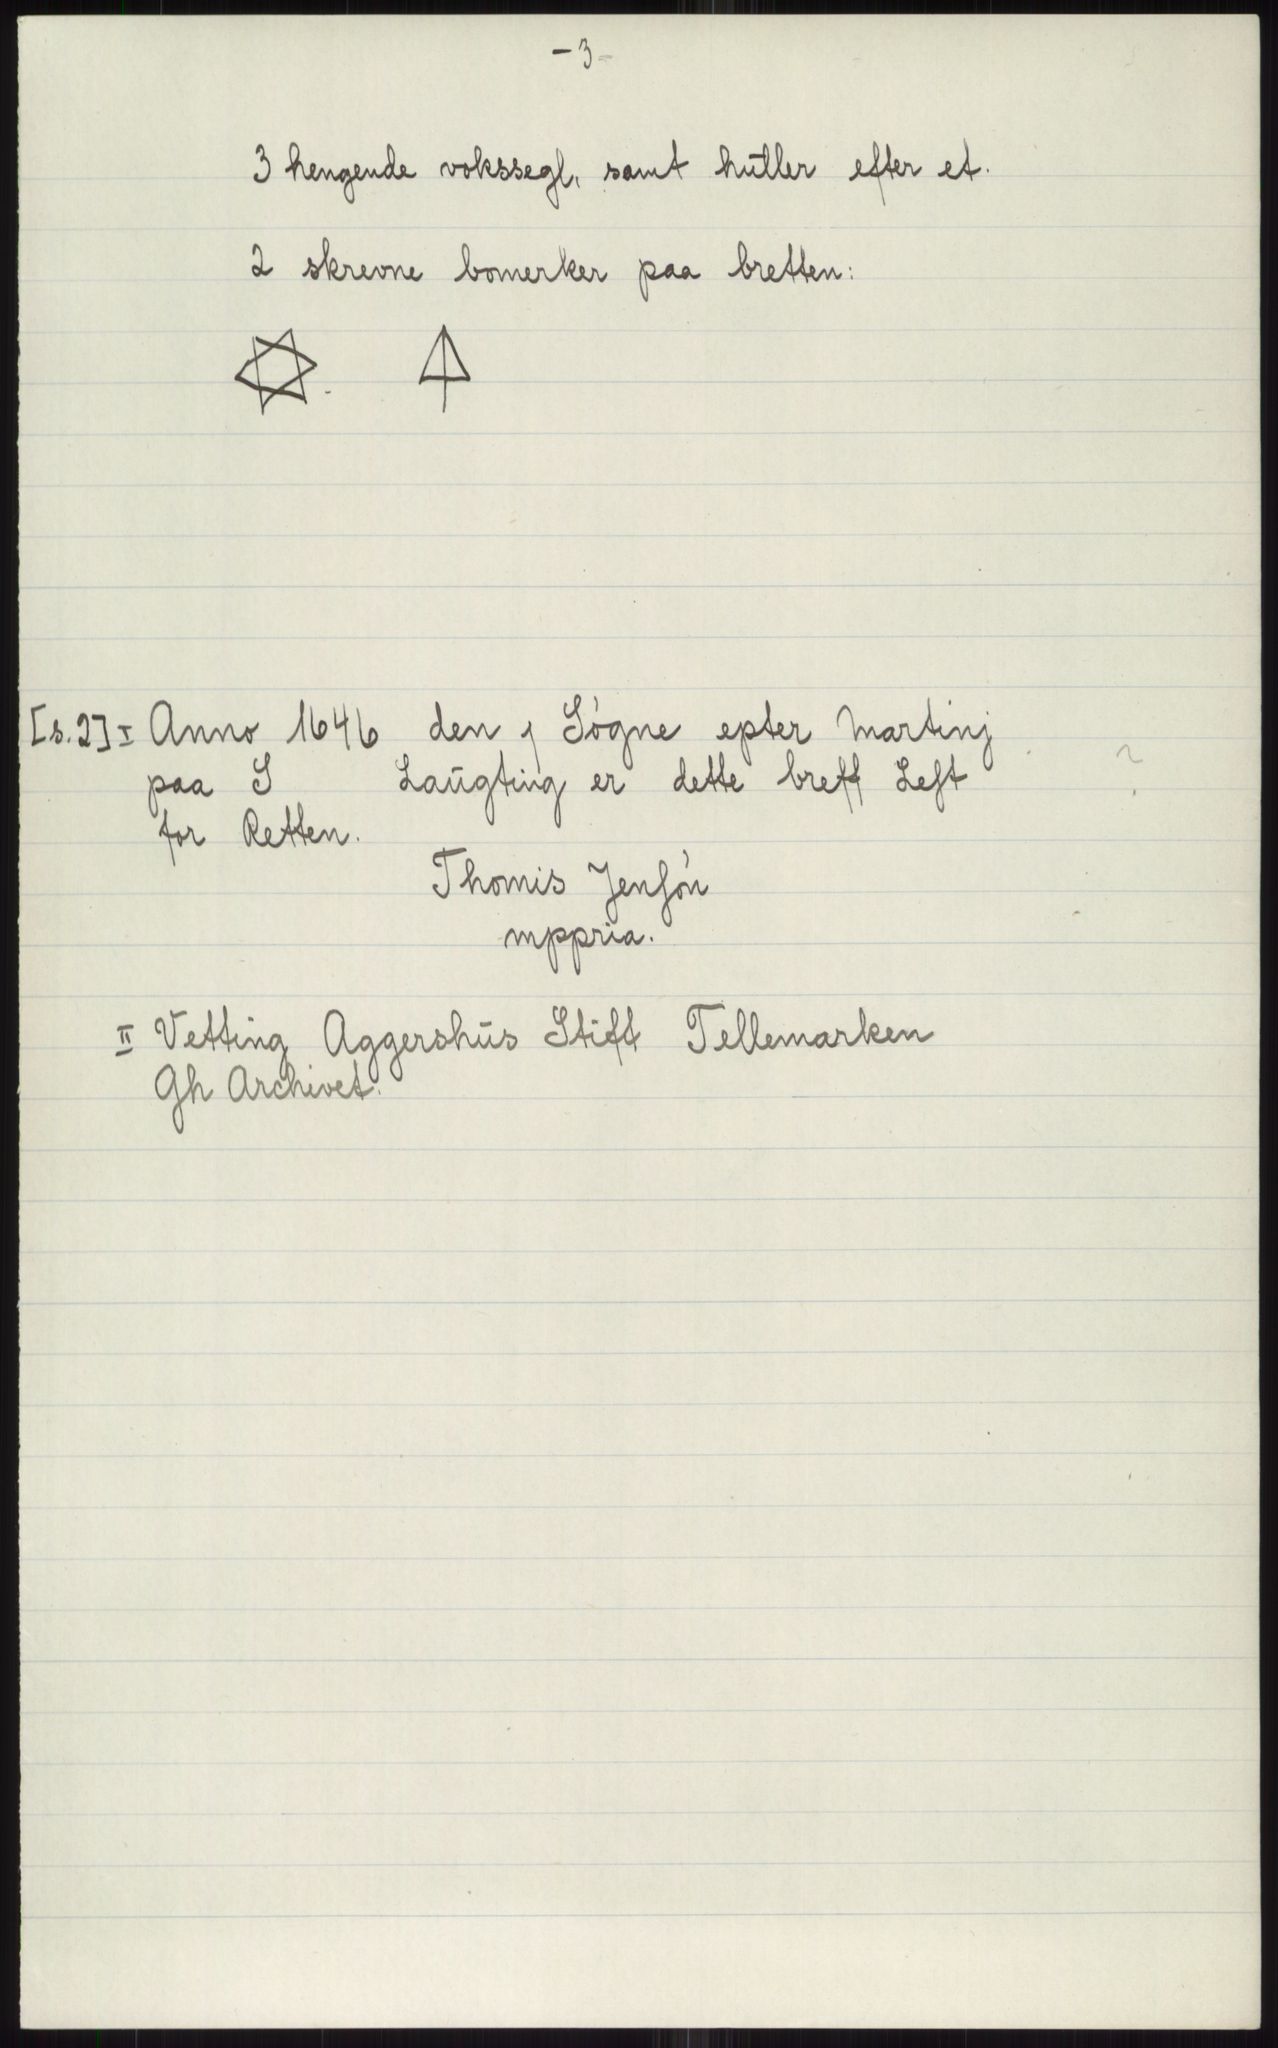 -3-
3 hengende vokssegl, samt hūller efter et.
2 skrevne bomerker paa bretten:
[s.2] I Anno 1646 den j Sógne epter Martinj
paa S Laūgting er dette breff Lest
for Retten.
Thomis Jensón
mppria.
II Vetting Aggershūs Stift Tellemarken
Gh Archivet.
?